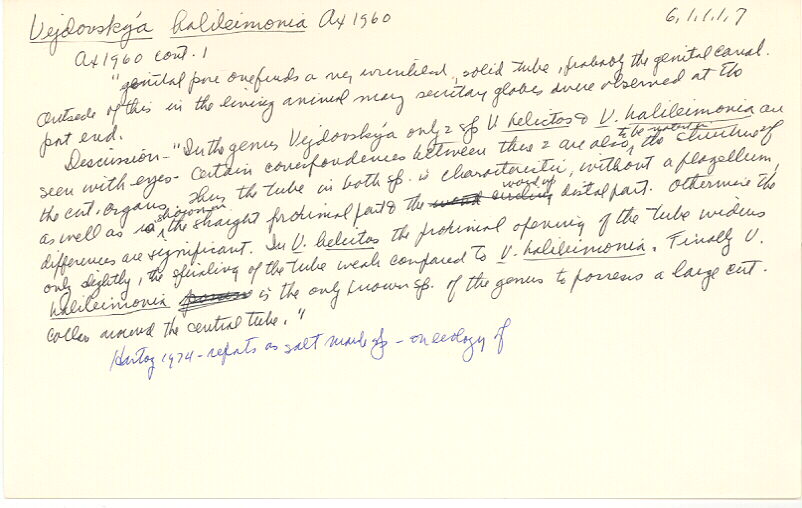 Vejdovskýa halileimonia Ax 1960
6,1,1,1,7
Ax 1960 cont. 1
"genital pore one finds a very wrinkled, solid tube, probably the genital canal.
Outside of this in the living animal many secretary globes were observed at the
post end.
Discussion - "In the genus Vejdovskýa only 2 sp V. helictos & V. halileimonia are
seen with eyes. Certain correspondences between these 2 are also to be noted in the structure of
the cut. organs. Thus the tube in both sp. is characteristic, without a flagellum,
as well as is the straight proximal part & the distal part. Otherwise the
differences are significant. In V. helictos the proximal opening of the tube widens
only slightly, the spiraling of the tube weak compared to V. halileimonia. Finally V.
halileimonia is the only known sp. of the genus to possess a large cut.
collar around the central tube."
Hartog 1974 - reports as salt marsh sp - on ecology of